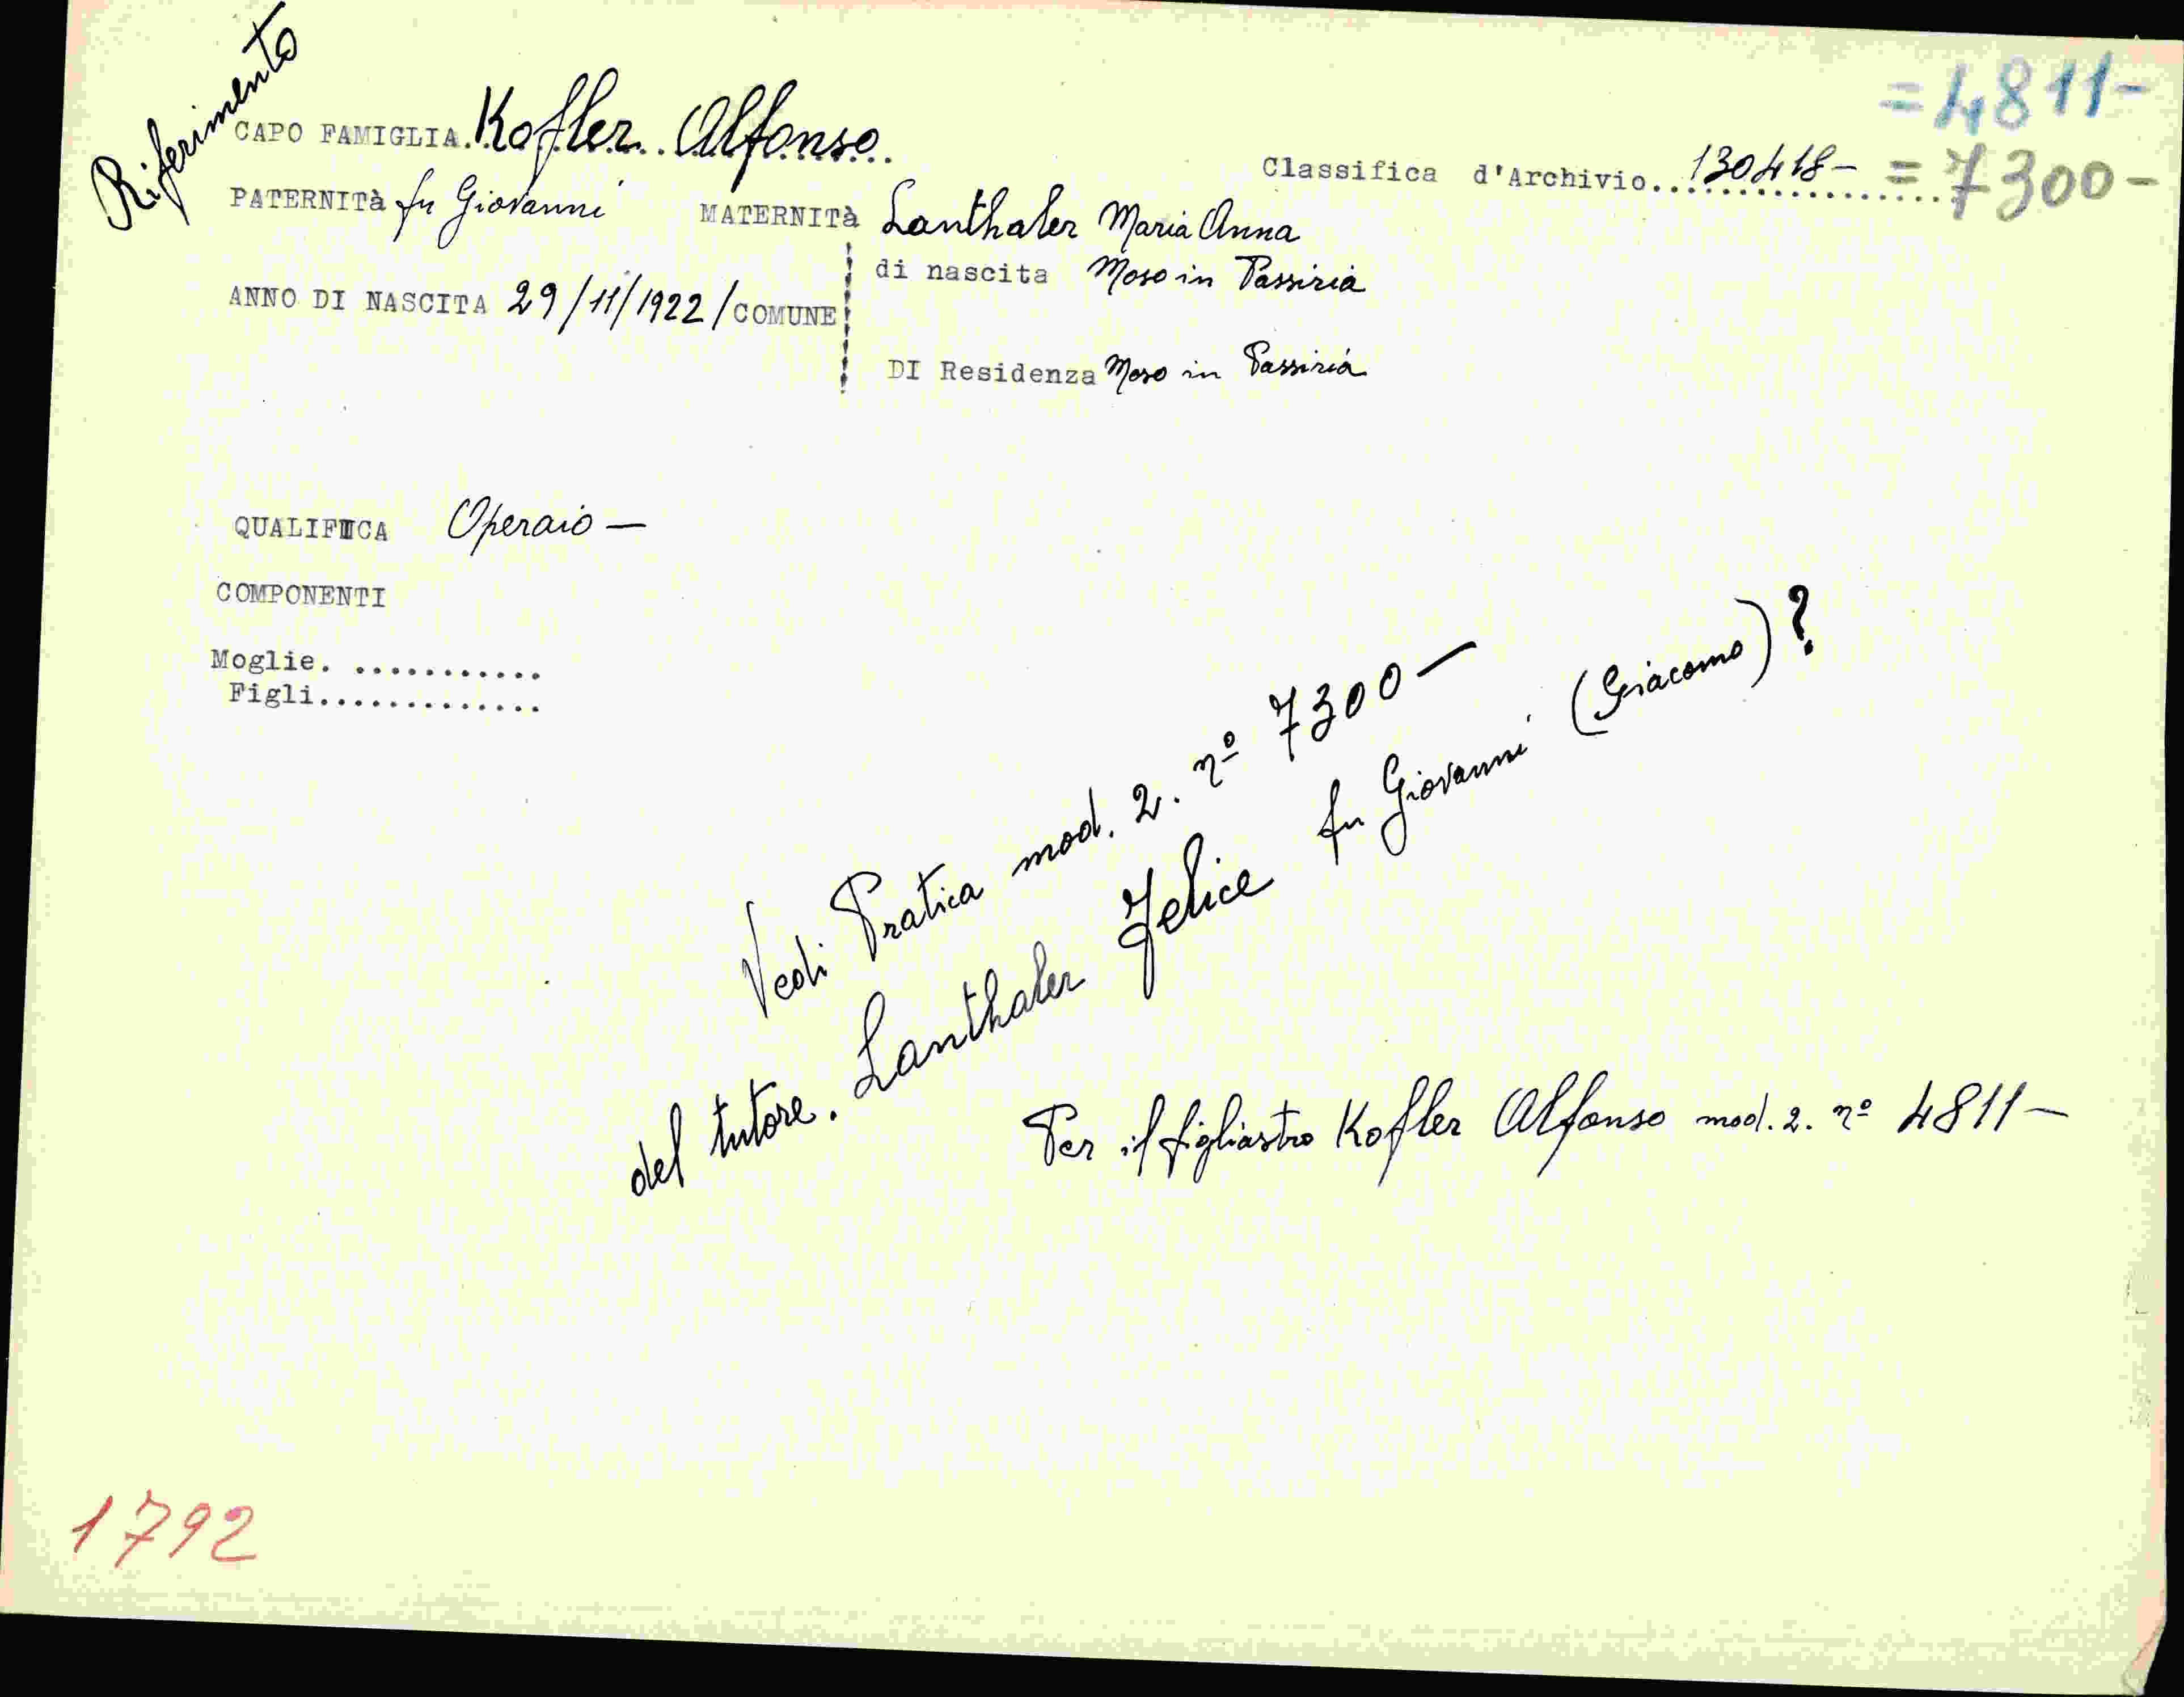 Riferimento
=4811-
CAPO FAMIGLIA. Kofler Alfonso.
Classifica d'Archivio... 130418- =7300-
PATERNITà fu Giovanni MATERNITà Lanthaler Maria Anna
di nascita Moso in Passiria
ANNO DI NASCITA 29/11/1922/ COMUNE
DI Residenza Moso in Passiria
QUALIFICA Operaio —
COMPONENTI
Moglie. ...........
Figli.............
Vedi Pratica mod. 2. nº 7300—
del tutore. Lanthaler Felice fu Giovanni (Giacomo)?
Per il figliastro Kofler Alfonso mod. 2. nº 4811—
1792